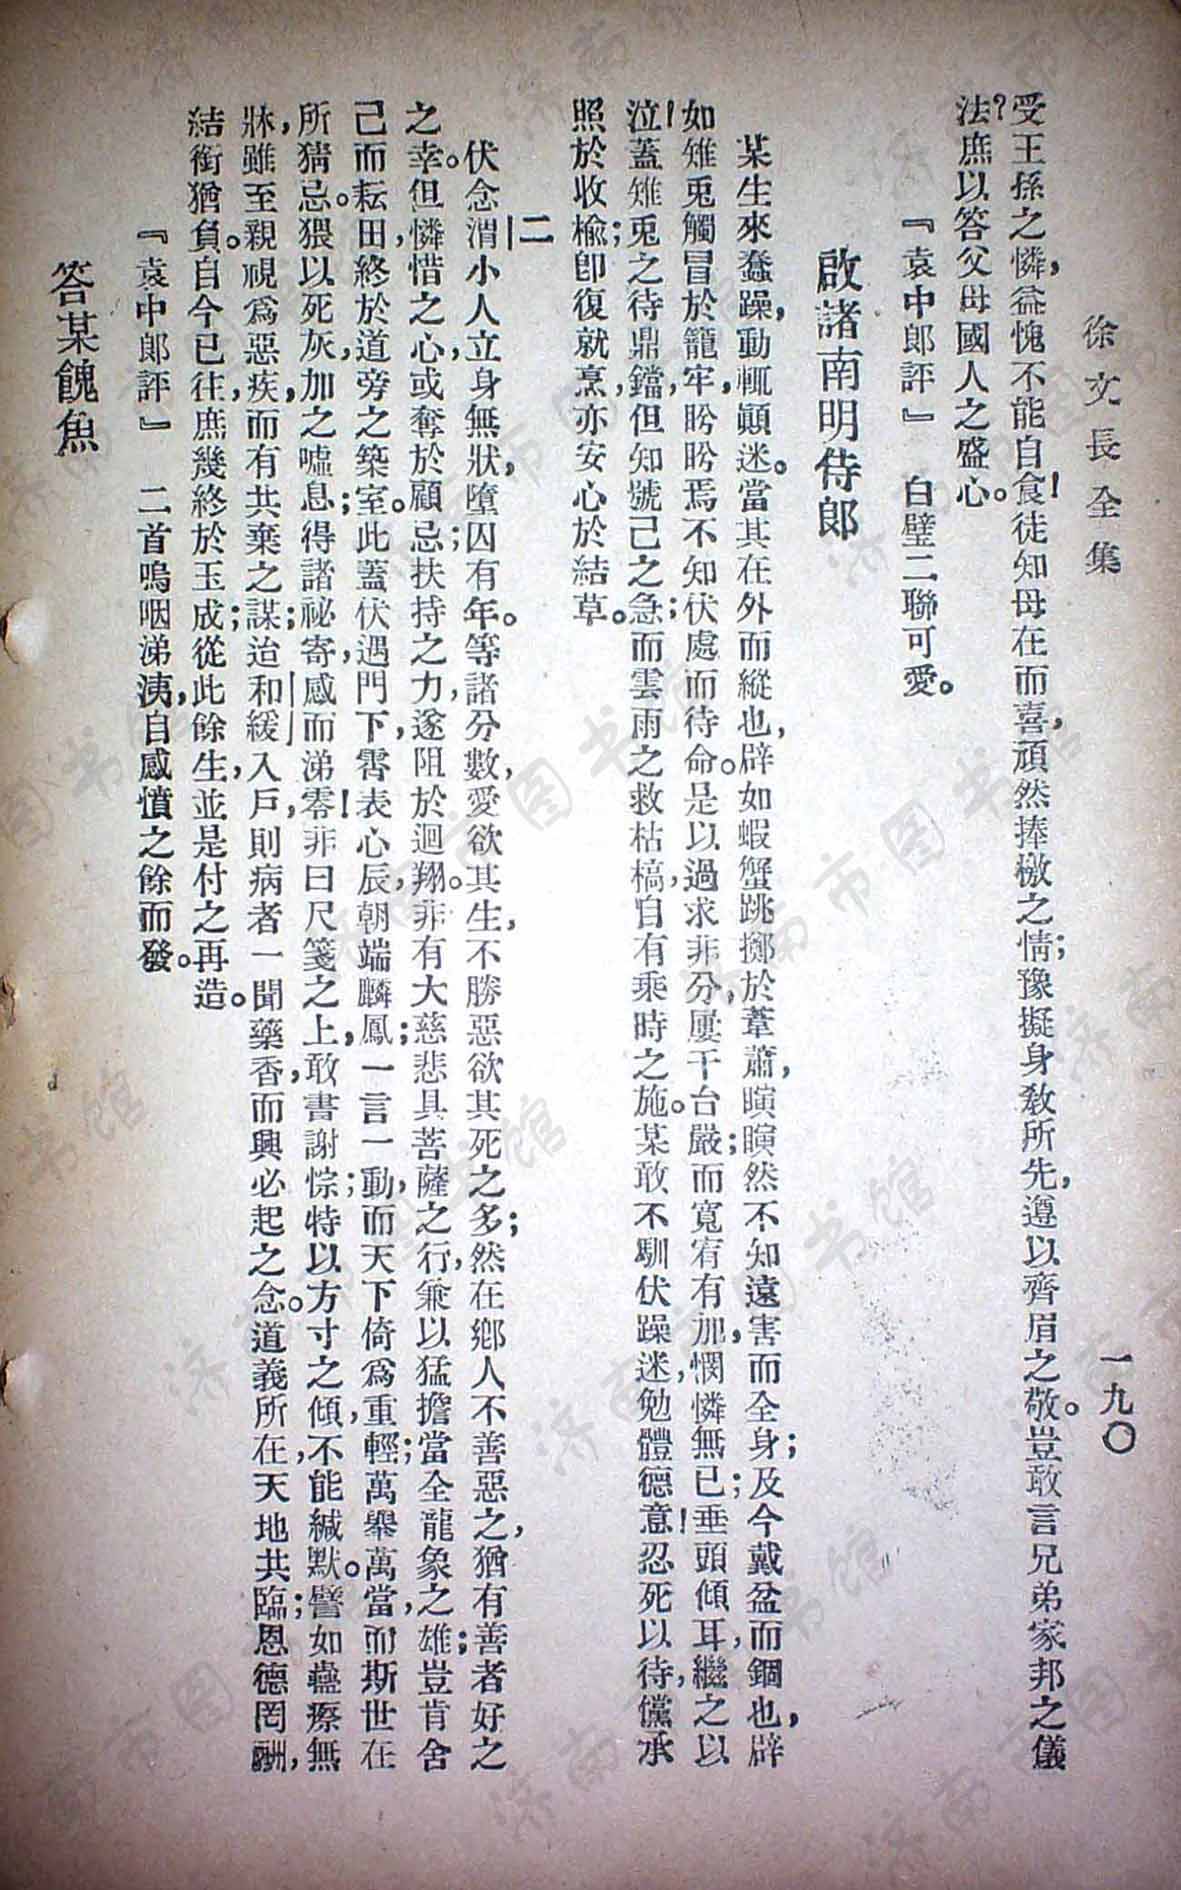 徐文長全集
一九〇
受王孫之憐，益愧不能自食！徒知母在而喜，頑然捧檄之情；豫擬身教所先，遵以齊眉之敬。豈敢言兄弟家邦之儀
法？庶以答父母國人之盛心。
『袁中郞評』　白璧二聯可愛。
啟諸南明侍郞
某生來蠢躁，動輒顚迷。當其在外而縱也，辟如蝦蟹跳擲於葦蕭，瞑瞑然不知遠害而全身；及今戴盆而錮也，辟
如雉兎觸冒於籠牢，盻盻焉不知伏處而待命。是以過求非分，屢干台嚴；而寬宥有加，憫憐無已；垂頭傾耳，繼之以
泣！蓋雉兎之待鼎鐺，但知號己之急；而雲雨之救枯槁，自有乘時之施。某敢不馴伏躁迷，勉體德意！忍死以待，儻承
照於收檢；卽復就烹，亦安心於結草。
二
伏念渭小人立身無狀，墮囚有年。等諸分數，愛欲其生，不勝惡欲其死之多；然在鄕人不善惡之，猶有善者好之
之幸。但憐惜之心，或奪於顧忌；扶持之力，遂阻於迴翔。非有大慈悲具菩薩之行，兼以猛擔當全龍象之雄；豈肯舍
己而耘田，終於道旁之築室。此蓋伏遇門下，霽表心辰，朝端麟鳳；一言一動，而天下倚爲重輕；萬舉萬當，而斯世在
所猜忌。猥以死灰，加之噓息；得諸祕寄，感而涕零！非曰尺箋之上，敢書謝悰；特以方寸之傾，不能緘默。譬如蠱瘵無
牀，雖至親視爲惡疾，而有共棄之謀；迨和緩入戶，則病者一聞藥香，而興必起之念。道義所在，天地共臨；恩德罔酬，
結銜猶負。自今已往，庶幾終於玉成；從此餘生，並是付之再造。
『袁中郞評』　二首嗚咽涕洟，自感憤之餘而發。
答某餽魚